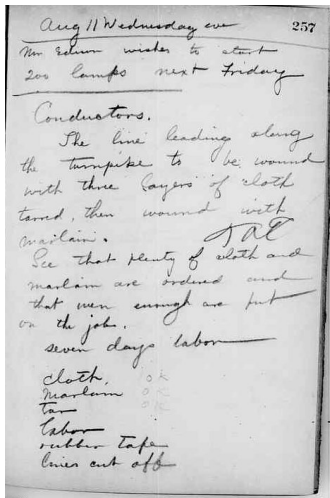 Aug 11 Wednesday eve
257
Mr Edison wishes to start
200 lamps next Friday
Conductors.
The line leading along
the turnpike to be wound
with three layers of cloth
tarred, then wound with
marlain.
TAE
See that plenty of cloth and
marlain are ordered and
that men enough are put
on the job.
seven days labor
cloth, OK
Marlain OK
tar OK
labor
rubber tape
lines cut off